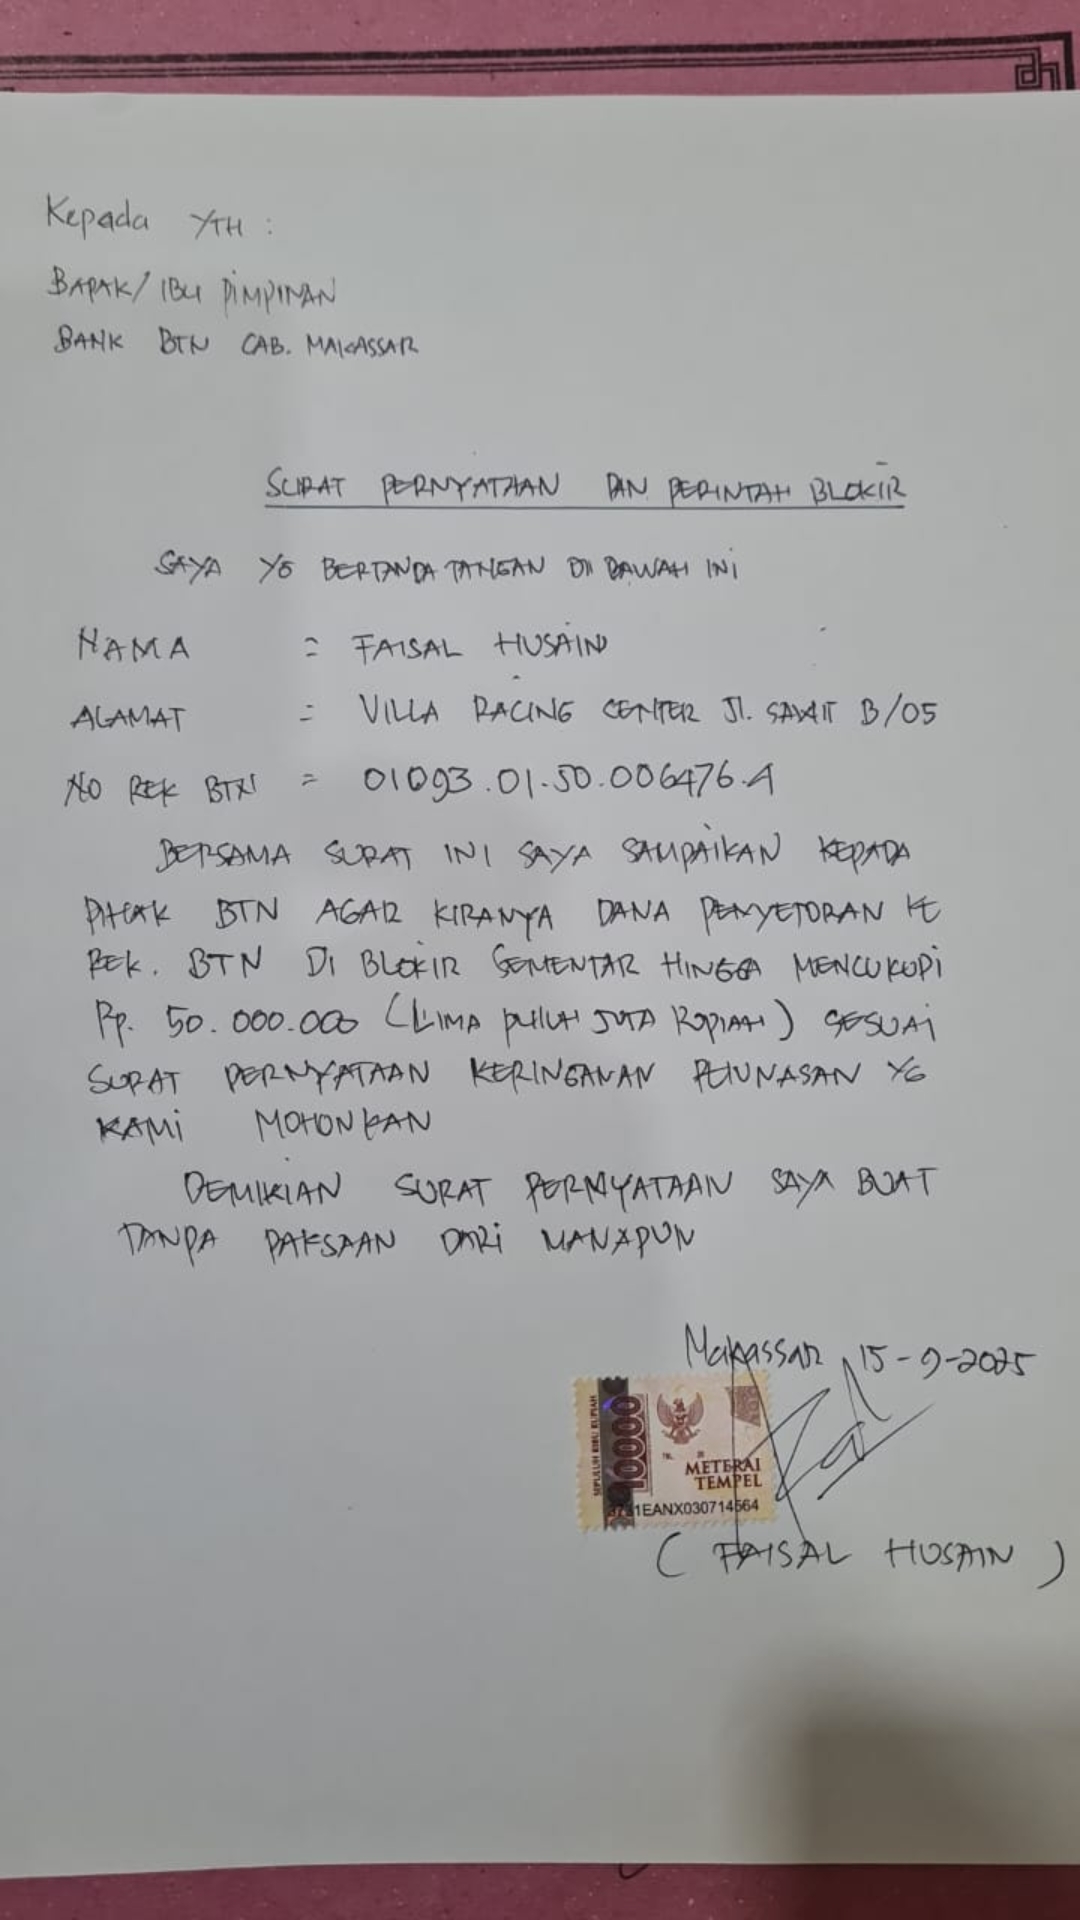 Kepada YTH :
BAPAK/ IBU PIMPINAN
BANK BTN CAB. MAKASSAR
SURAT PERNYATAAN DAN PERINTAH BLOKIR
SAYA YG BERTANDA TANGAN DI BAWAH INI
NAMA = FAISAL HUSAIN
ALAMAT = VILLA RACING CENTER Jl. B/05
NO REK BTN = 01093.01.50.006476.4
BERSAMA SURAT INI SAYA SAMPAIKAN KEPADA
PIHAK BTN AGAR KIRANYA DANA PENYETORAN KE
REK. BTN DI BLOKIR SEMENTAR HINGGA MENCUKUPI
Rp. 50.000.000 (LIMA PULUH JUTA RUPIAH) SESUAI
SURAT PERNYATAAN KERINGANAN PELUNASAN YG
KAMI MOHONKAN
DEMIKIAN SURAT PERNYATAAN SAYA BUAT
TANPA PAKSAAN DARI MANAPUN
Makassar, 15-9-2025
SEPULUH RIBU RUPIAH
10000
TGL. 20
METERAI
TEMPEL
EANX030714564
( FAISAL HUSAIN )